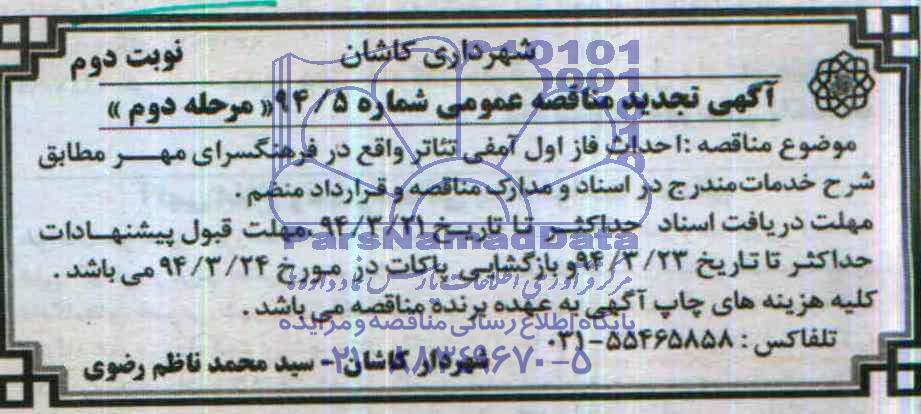 شهرداری کاشان
نوبت دوم
آگهی تجدید مناقصه عمومی شماره ۹۴/۵ « مرحله دوم »
موضوع مناقصه :احداث فاز اول آمفی تئاتر واقع در فرهنگسرای مهر مطابق
شرح خدمات مندرج در اسناد و مدارک مناقصه و قرارداد منضم .
مهلت دریافت اسناد حداکثر تا تاریخ ۹۴/۳/۲۱ ،مهلت قبول پیشنهادات
حداکثر تا تاریخ ۹۴/۳/۲۳ و بازگشایی پاکات در مورخ ۹۴/۳/۲۴ می باشد .
کلیه هزینه های چاپ آگهی به عهده برنده مناقصه می باشد .
تلفاکس : ۵۵۴۶۵۸۵۸-۰۳۱
شهردار کاشان - سید محمد ناظم رضوی
ParsNamadData
مرکز فرآوری اطلاعات پارس نماد داده ها
پایگاه اطلاع رسانی مناقصه و مزایده
۰۲۱-۸۸۳۴۹۶۷۰-۵